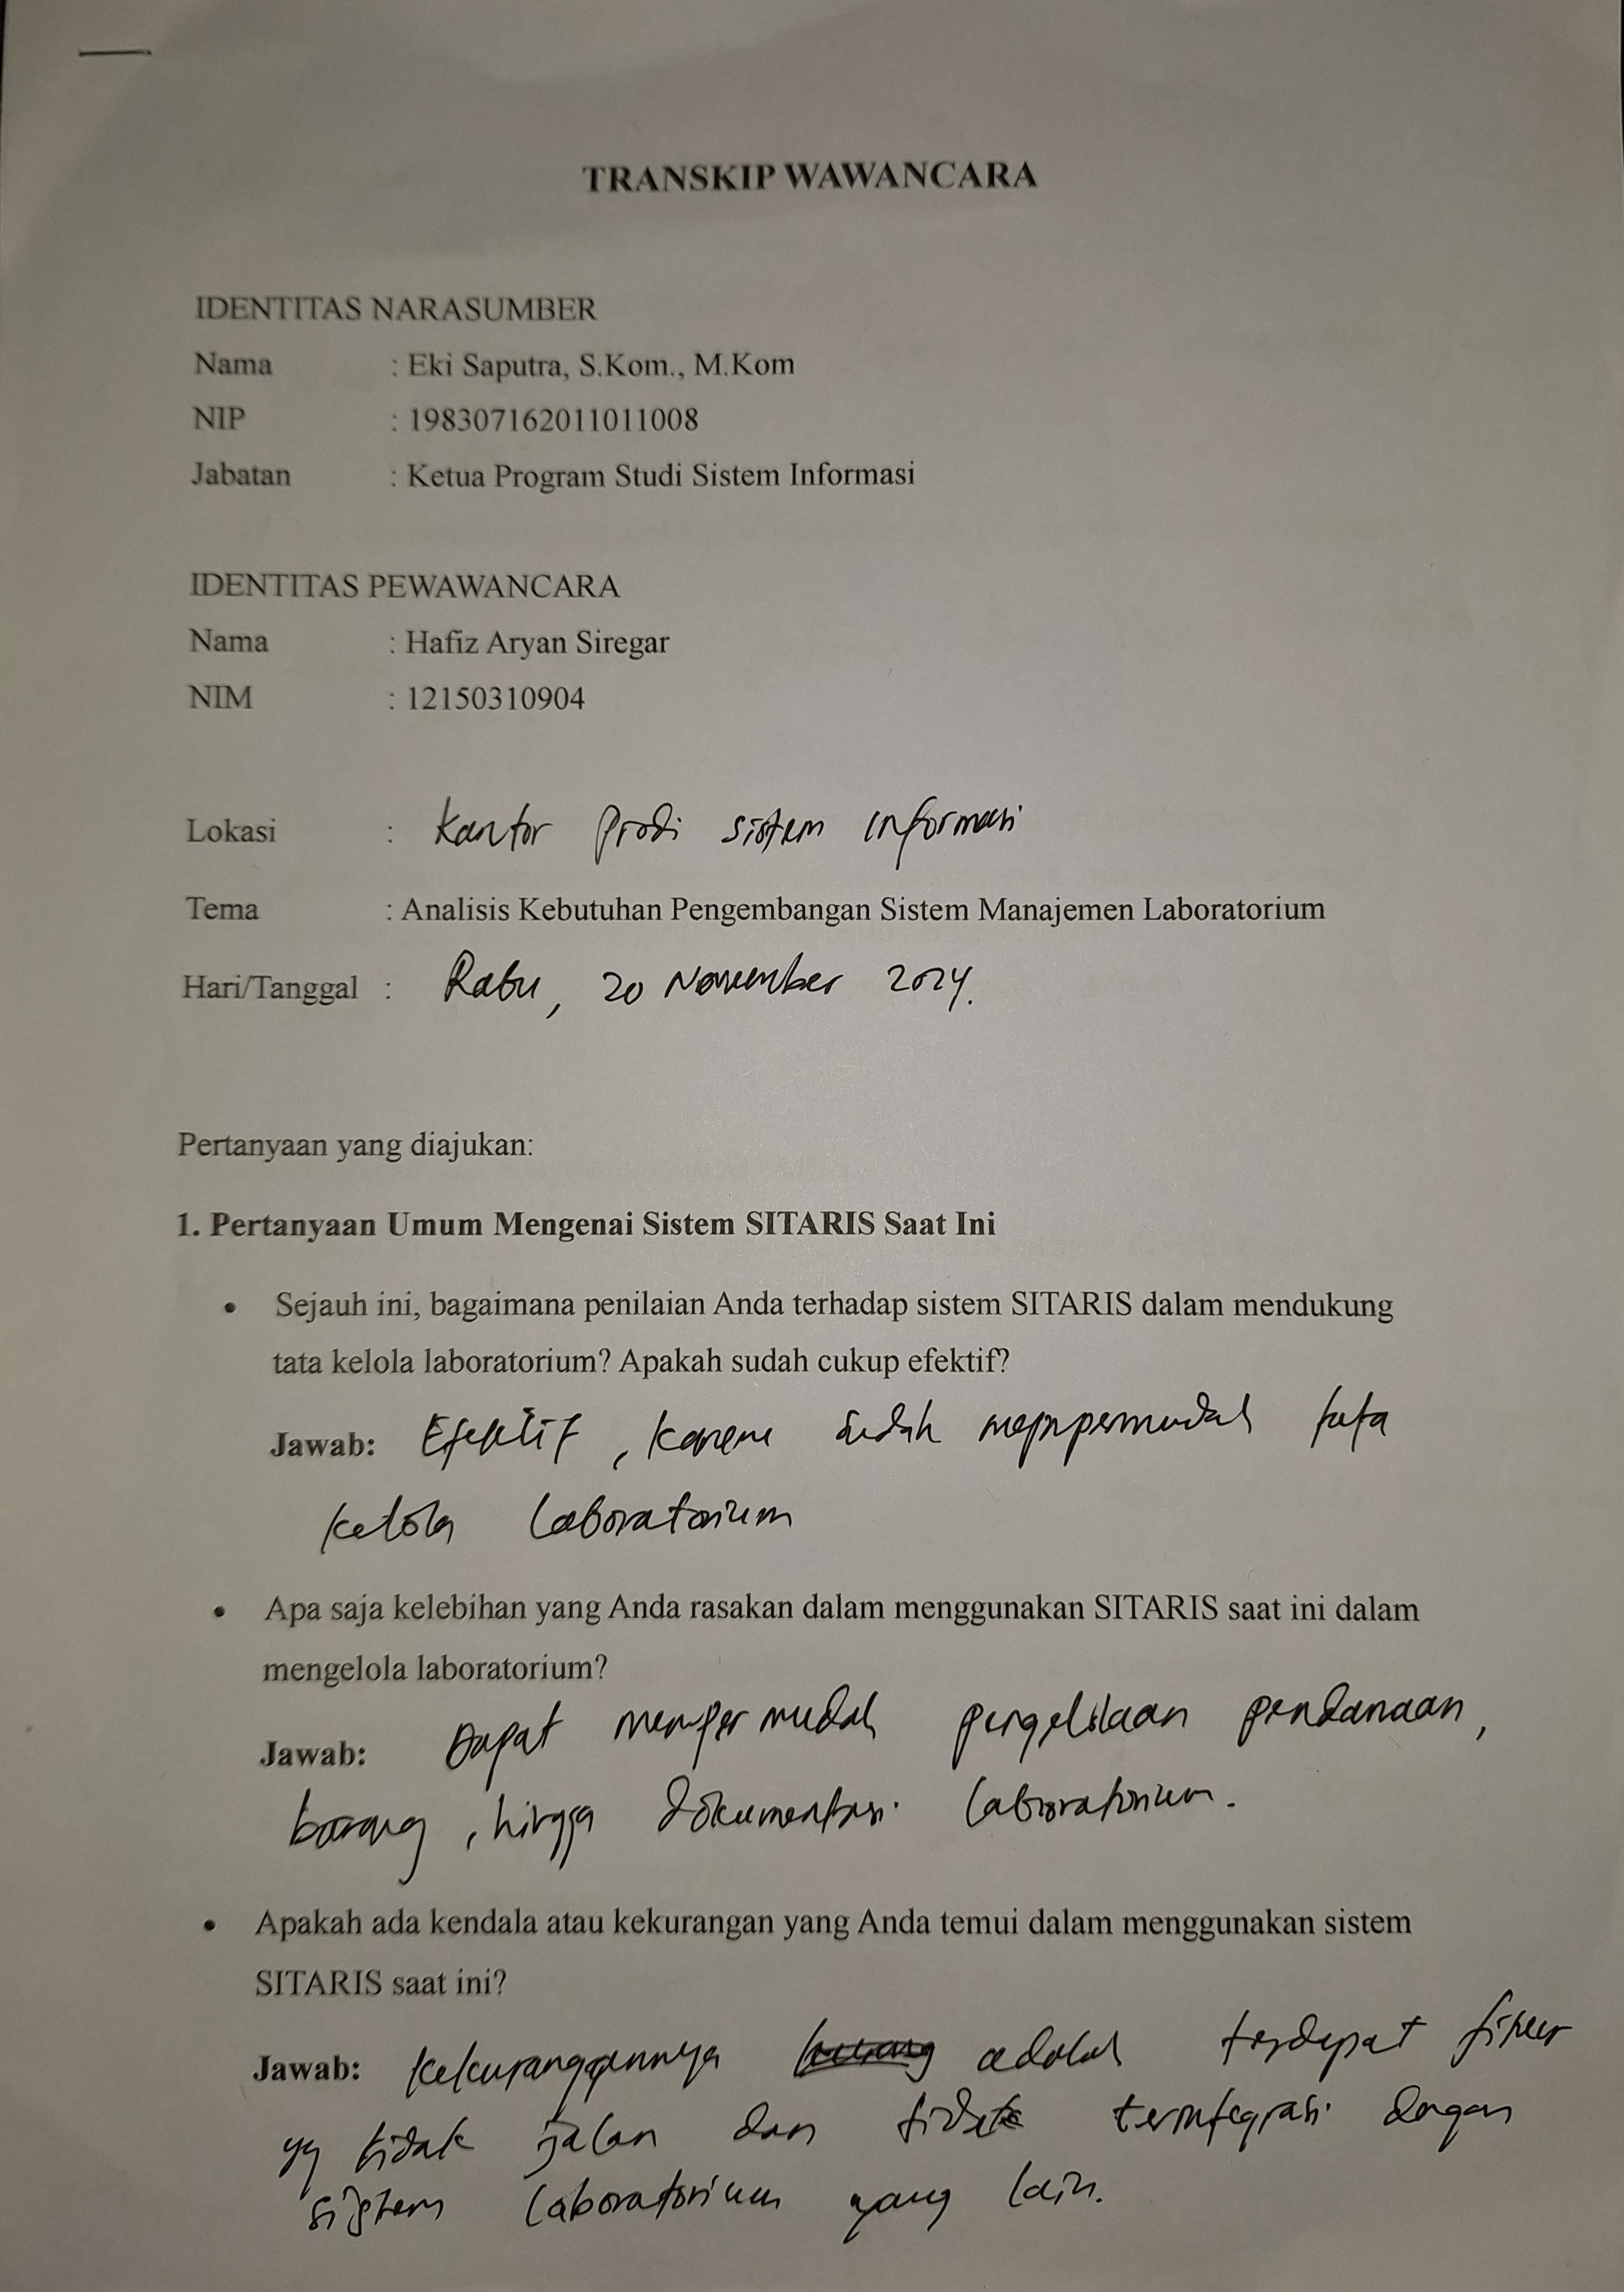 TRANSKIP WAWANCARA
IDENTITAS NARASUMBER
Nama : Eki Saputra, S.Kom., M.Kom
NIP : 198307162011011008
Jabatan : Ketua Program Studi Sistem Informasi
IDENTITAS PEWAWANCARA
Nama : Hafiz Aryan Siregar
NIM : 12150310904
Lokasi : Kantor Prodi sistem informasi
Tema : Analisis Kebutuhan Pengembangan Sistem Manajemen Laboratorium
Hari/Tanggal : Rabu, 20 November 2024.
Pertanyaan yang diajukan:
1. Pertanyaan Umum Mengenai Sistem SITARIS Saat Ini
• Sejauh ini, bagaimana penilaian Anda terhadap sistem SITARIS dalam mendukung
tata kelola laboratorium? Apakah sudah cukup efektif?
Jawab: Efektif, karena sudah mempermudah tata
kelola laboratorium
• Apa saja kelebihan yang Anda rasakan dalam menggunakan SITARIS saat ini dalam
mengelola laboratorium?
Jawab: Dapat mempermudah pengelolaan pendanaan,
barang, hingga dokumentasi laboratorium.
• Apakah ada kendala atau kekurangan yang Anda temui dalam menggunakan sistem
SITARIS saat ini?
Jawab: Kekurangannya adalah terdapat fitur
yg tidak jalan dan tidak terintegrasi dengan
sistem laboratorium yang lain.